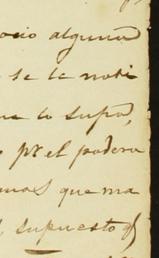 ocio alguna
se le noti
ue lo supo,
pr el podera
mas que ma
supuesto q